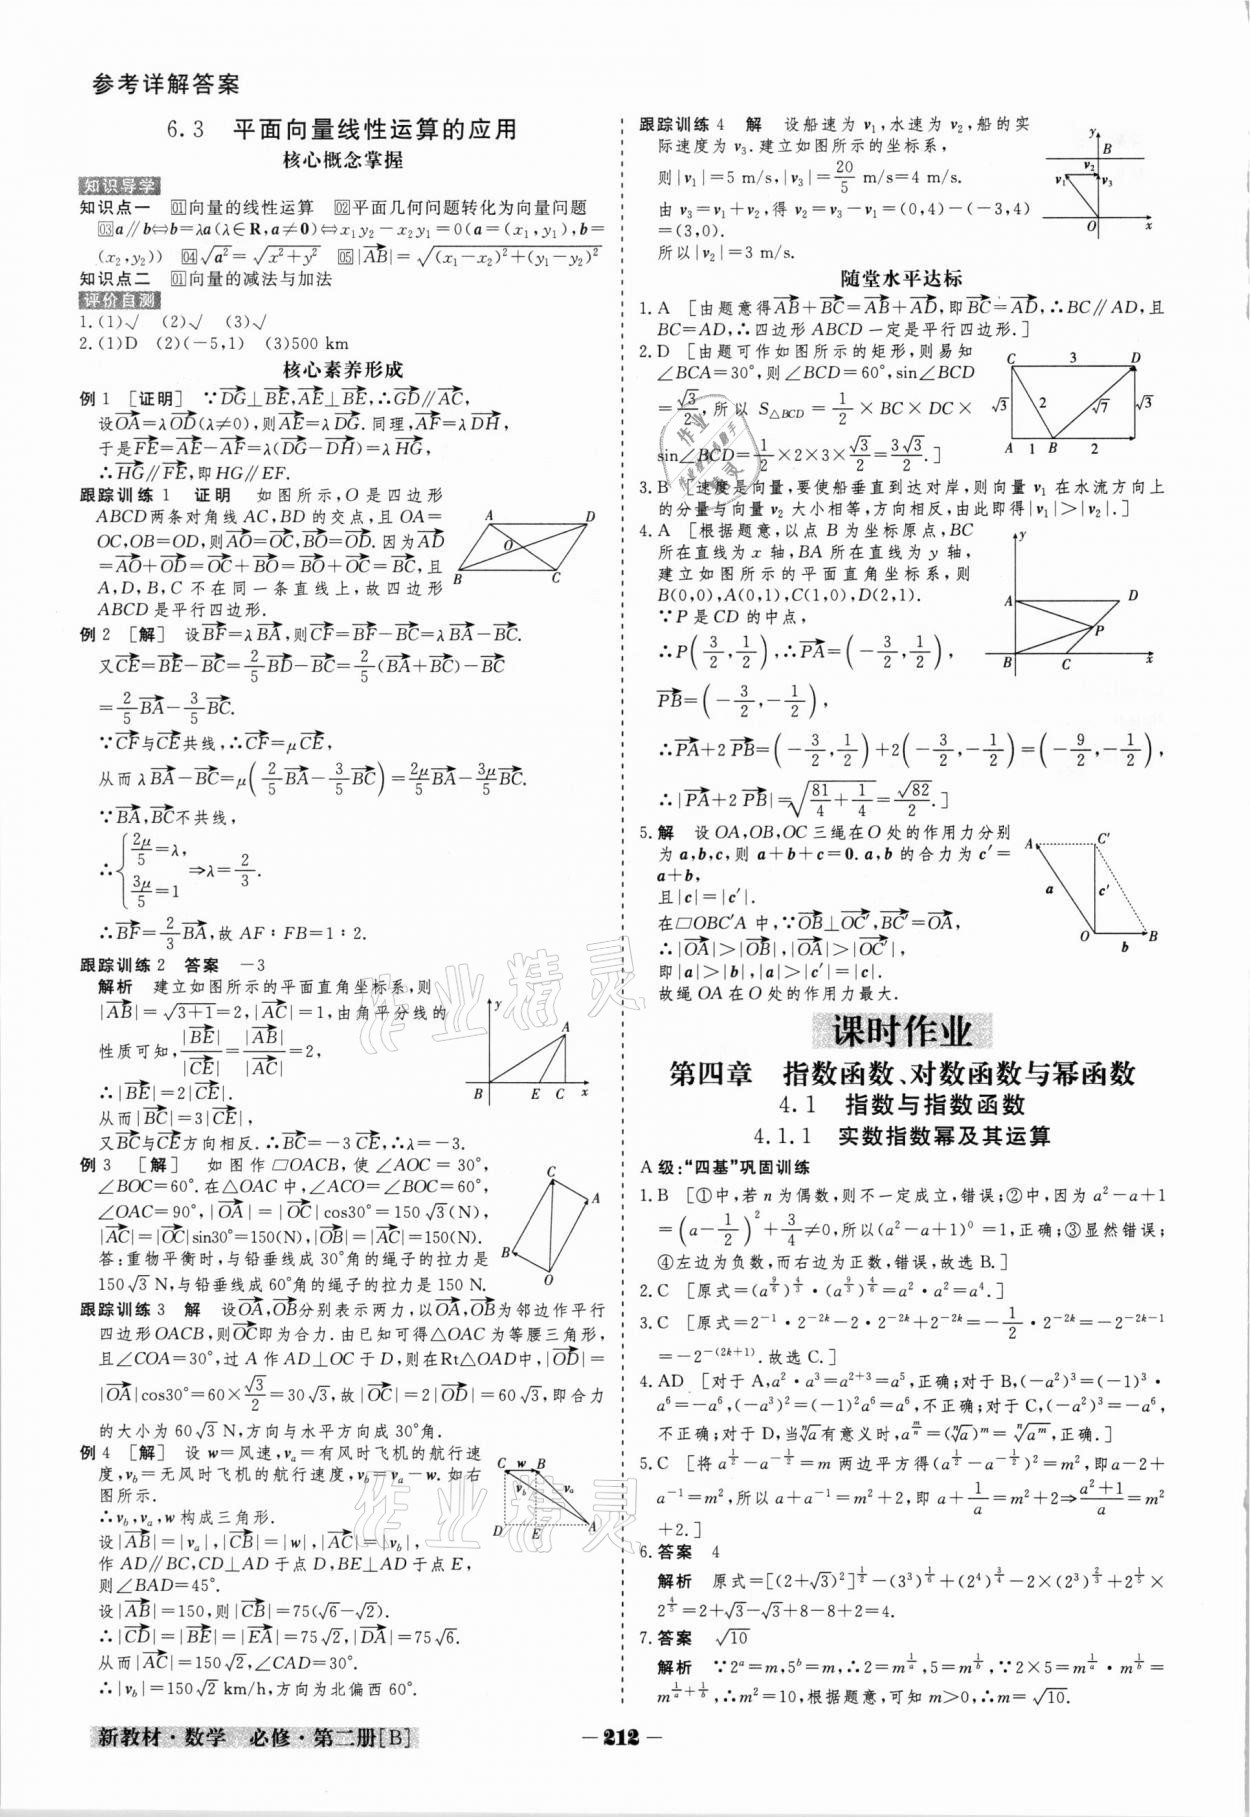 参考详解答案
6.3 平面向量线性运算的应用
核心概念掌握
知识导学
知识点一 01向量的线性运算 02平面几何问题转化为向量问题
03a∥b⇔b=λa(λ∈R,a≠0)⇔x₁y₂-x₂y₁=0(a=(x₁,y₁),b=
(x₂,y₂)) 04√a²=√(x²+y²) 05|AB|=√((x₁-x₂)²+(y₁-y₂)²)
知识点二 01向量的减法与加法
评价自测
1.(1)√ (2)√ (3)√
2.(1)D (2)(-5,1) (3)500 km
核心素养形成
例1 [证明] ∵DG⊥BE,AE⊥BE,∴DG∥AC,
设OA=λOD(λ≠0),则AE=λDG.同理,AF=λDH,
于是FE=AE-AF=λ(DG-DH)=λHG,
∴HG∥FE,即HG∥EF.
跟踪训练1 证明 如图所示,O是四边形
ABCD两条对角线AC,BD的交点,且OA=
OC,OB=OD,则AO=OC,BO=OD.因为AD
=AO+OD=OC+BO=BO+OC=BC,且
A,D,B,C不在同一条直线上,故四边形
ABCD是平行四边形.
A D O B C
例2 [解] 设BF=λBA,则CF=BF-BC=λBA-BC.
又CE=BE-BC=2/5BD-BC=2/5(BA+BC)-BC
=2/5BA-3/5BC.
∵CF与CE共线,∴CF=μCE,
从而λBA-BC=μ(2/5BA-3/5BC)=2μ/5BA-3μ/5BC.
∵BA,BC不共线,
∴{2μ/5=λ, 3μ/5=1 ⇒λ=2/3.
∴BF=2/3BA,故AF∶FB=1∶2.
跟踪训练2 答案 -3
解析 建立如图所示的平面直角坐标系,则
|AB|=√(3+1)=2,|AC|=1,由角平分线的
性质可知,|BE|/|CE|=|AB|/|AC|=2,
∴|BE|=2|CE|.
从而|BC|=3|CE|,
又BC与CE方向相反.∴BC=-3CE,∴λ=-3.
y A B E C x
例3 [解] 如图作▱OACB,使∠AOC=30°,
∠BOC=60°.在△OAC中,∠ACO=∠BOC=60°,
∠OAC=90°,|OA|=|OC|cos30°=150√3(N),
|AC|=|OC|sin30°=150(N),|OB|=|AC|=150(N).
答:重物平衡时,与铅垂线成30°角的绳子的拉力是
150√3 N,与铅垂线成60°角的绳子的拉力是150 N.
C A B O
跟踪训练3 解 设OA,OB分别表示两力,以OA,OB为邻边作平行
四边形OACB,则OC即为合力.由已知可得△OAC为等腰三角形,
且∠COA=30°,过A作AD⊥OC于D,则在Rt△OAD中,|OD|=
|OA|cos30°=60×√3/2=30√3,故|OC|=2|OD|=60√3,即合力
的大小为60√3 N,方向与水平方向成30°角.
例4 [解] 设w=风速,vₐ=有风时飞机的航行速
度,v_b=无风时飞机的航行速度,v_b=vₐ-w.如右
图所示.
∴v_b,vₐ,w构成三角形.
设|AB|=|vₐ|,|CB|=|w|,|AC|=|v_b|,
作AD∥BC,CD⊥AD于点D,BE⊥AD于点E,
则∠BAD=45°.
设|AB|=150,则|CB|=75(√6-√2).
∴|CD|=|BE|=|EA|=75√2,|DA|=75√6.
从而|AC|=150√2,∠CAD=30°.
∴|v_b|=150√2 km/h,方向为北偏西60°.
C w B v_b vₐ D E A
跟踪训练4 解 设船速为v₁,水速为v₂,船的实
际速度为v₃.建立如图所示的坐标系,
则|v₁|=5 m/s,|v₃|=20/5 m/s=4 m/s.
由v₃=v₁+v₂,得v₂=v₃-v₁=(0,4)-(-3,4)
=(3,0).
所以|v₂|=3 m/s.
y B v₂ v₁ v₃ O x
随堂水平达标
1.A [由题意得AB+BC=AB+AD,即BC=AD,∴BC∥AD,且
BC=AD,∴四边形ABCD一定是平行四边形.]
2.D [由题可作如图所示的矩形,则易知
∠BCA=30°,则∠BCD=60°,sin∠BCD
=√3/2,所以S△BCD=1/2×BC×DC×
sin∠BCD=1/2×2×3×√3/2=3√3/2.]
C 3 D √3 2 √7 √3 A 1 B 2
3.B [速度是向量,要使船垂直到达对岸,则向量v₁在水流方向上
的分量与向量v₂大小相等,方向相反,由此即得|v₁|>|v₂|.]
4.A [根据题意,以点B为坐标原点,BC
所在直线为x轴,BA所在直线为y轴,
建立如图所示的平面直角坐标系,则
B(0,0),A(0,1),C(1,0),D(2,1).
∵P是CD的中点,
∴P(3/2,1/2),∴PA=(-3/2,1/2),
PB=(-3/2,-1/2),
∴PA+2PB=(-3/2,1/2)+2(-3/2,-1/2)=(-9/2,-1/2),
∴|PA+2PB|=√(81/4+1/4)=√82/2.]
y A D P B C x
5.解 设OA,OB,OC三绳在O处的作用力分别
为a,b,c,则a+b+c=0.a,b的合力为c′=
a+b,
且|c|=|c′|.
在▱OBC′A中,∵OB⊥OC′,BC′=OA,
∴|OA|>|OB|,|OA|>|OC′|,
即|a|>|b|,|a|>|c′|=|c|.
故绳OA在O处的作用力最大.
A C′ a c′ O b B
课时作业
第四章 指数函数、对数函数与幂函数
4.1 指数与指数函数
4.1.1 实数指数幂及其运算
A级:“四基”巩固训练
1.B [①中,若n为偶数,则不一定成立,错误;②中,因为a²-a+1
=(a-1/2)²+3/4≠0,所以(a²-a+1)⁰=1,正确;③显然错误;
④左边为负数,而右边为正数,错误,故选B.]
2.C [原式=(a^(9/6))^(4/3)·(a^(9/3))^(4/6)=a²·a²=a⁴.]
3.C [原式=2⁻¹·2^(-2k)-2·2^(-2k)+2^(-2k)=-1/2·2^(-2k)=-2^(-2k-1)
=-2^(-(2k+1)).故选C.]
4.AD [对于A,a²·a³=a²⁺³=a⁵,正确;对于B,(-a²)³=(-1)³·
a⁶=-a⁶,(-a³)²=(-1)²a⁶=a⁶,不正确;对于C,(-a²)³=-a⁶,
不正确;对于D,当ⁿ√a有意义时,a^(m/n)=(ⁿ√a)^m=ⁿ√(a^m),正确.]
5.C [将a^(1/2)-a^(-1/2)=m两边平方得(a^(1/2)-a^(-1/2))²=m²,即a-2+
a⁻¹=m²,所以a+a⁻¹=m²+2,即a+1/a=m²+2⇒(a²+1)/a=m²
+2.]
6.答案 4
解析 原式=[(2+√3)²]^(1/2)-(3³)^(1/6)+(2⁴)^(3/4)-2×(2³)^(2/3)+2^(1/5)×
2^(4/5)=2+√3-√3+8-8+2=4.
7.答案 √10
解析 ∵2^a=m,5^b=m,∴2=m^(1/a),5=m^(1/b),∵2×5=m^(1/a)·m^(1/b)=
m^(1/a+1/b),∴m²=10,根据题意,可知m>0,∴m=√10.
新教材·数学 必修·第二册[B]
— 212 —
作业精灵
作业精灵